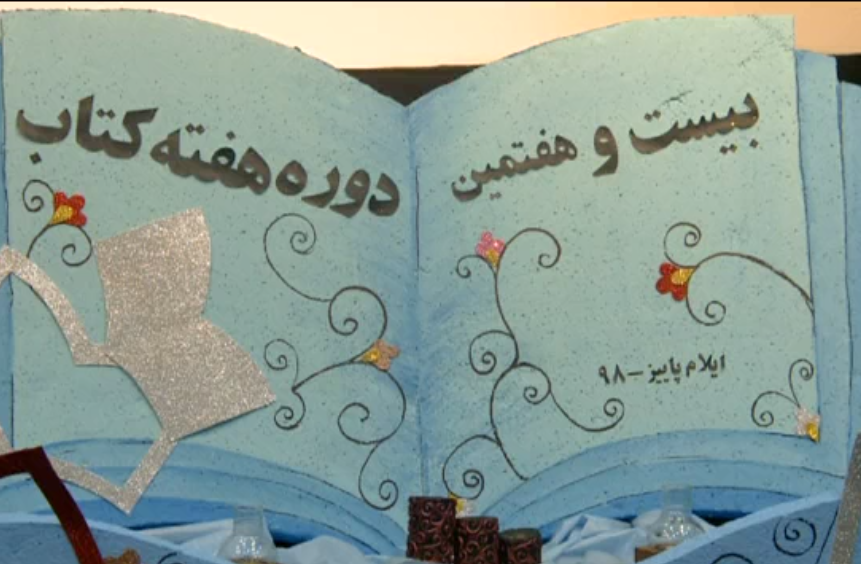 بیست و هفتمین
دوره هفته کتاب
ایلام پاییز – ۹۸